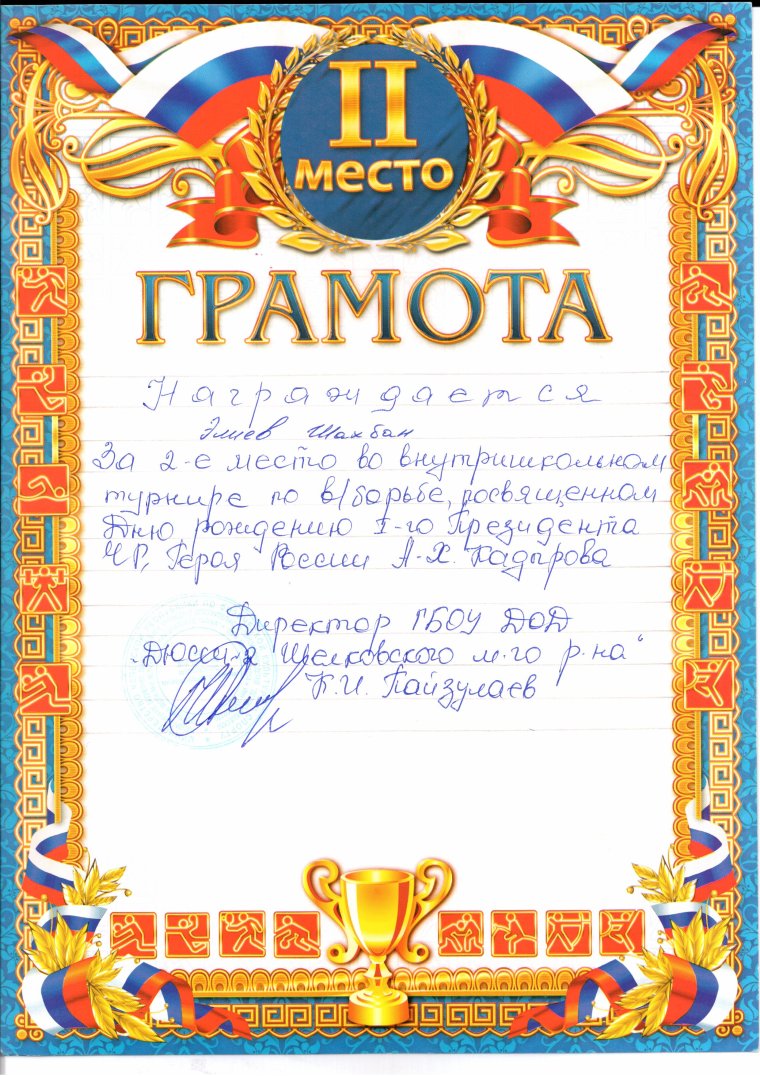 II
место
ГРАМОТА
Награждается
Элиев Шахбан
За 2-е место во внутришкольном
турнире по в/борьбе, посвященном
Дню рождению I-го Президента
ЧР, Героя России А-Х. Кадырова
Директор ГБОУ ДОД
„ДЮСШ-2 Шелковского м-го р-на"
Пайзулаев